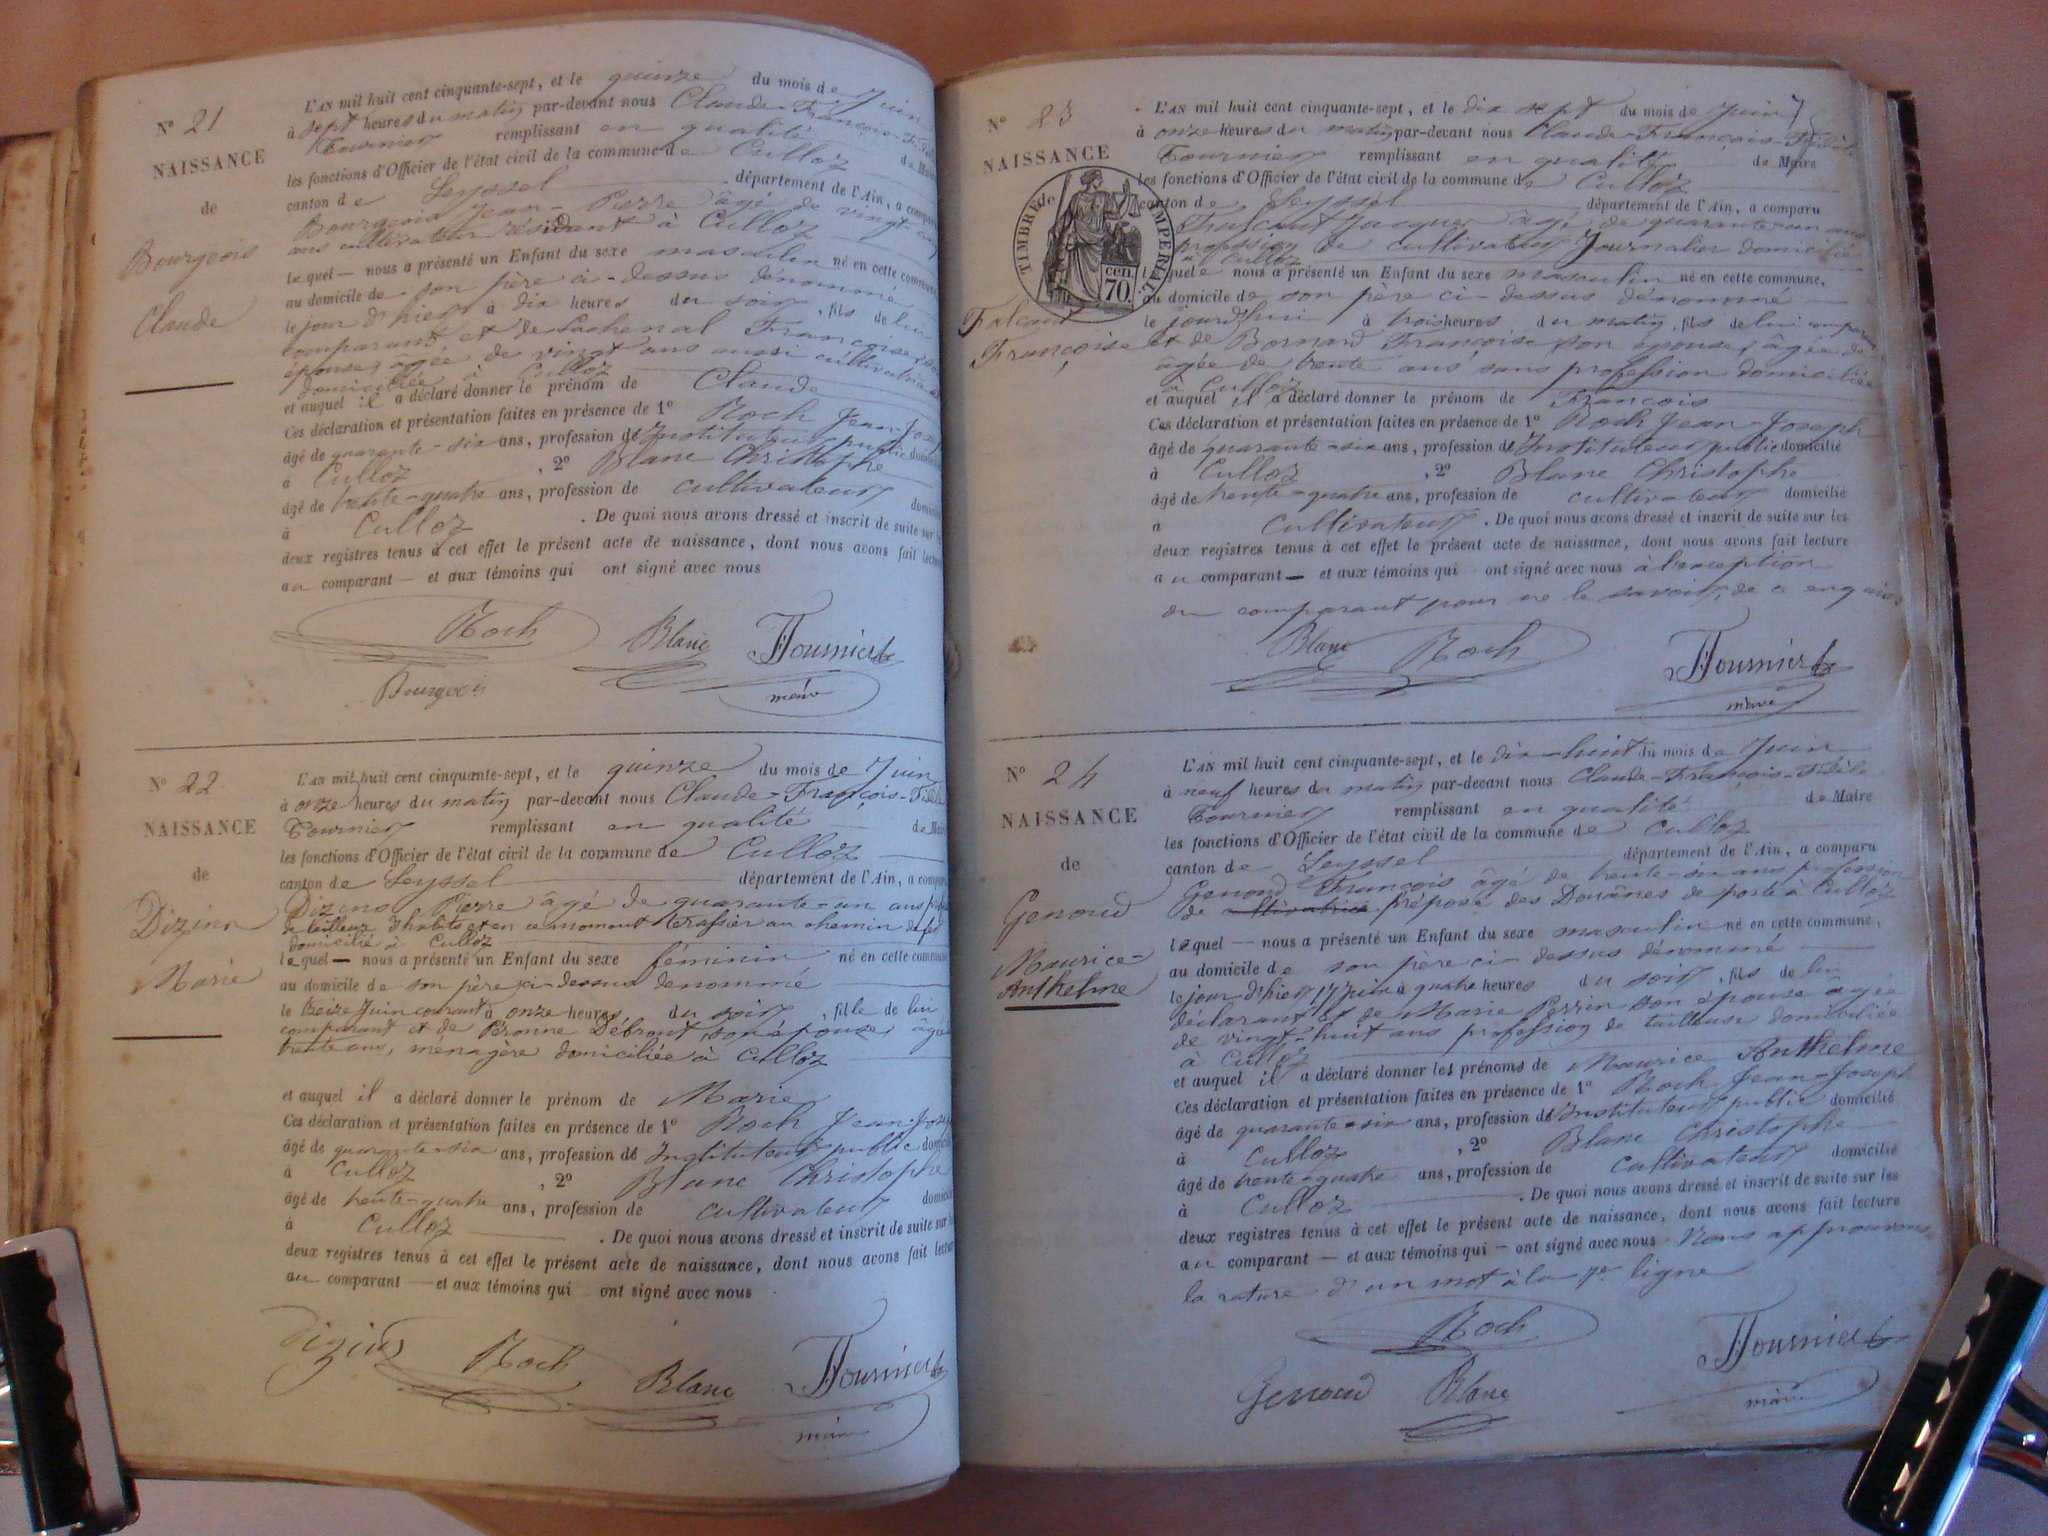 N° 21
NAISSANCE
de
Bourgeois
Claude
L'AN mil huit cent cinquante-sept, et le quinze du mois de Juin
à sept heures du matin par-devant nous Claude-François-Fidèle
Tournier remplissant en qualité de Maire
les fonctions d'Officier de l'état civil de la commune de Culloz
canton de Seyssel département de l'Ain, a comparu
Bourgeois Jean-Pierre âgé de vingt-cinq
ans cultivateur résidant à Culloz
lequel — nous a présenté un Enfant du sexe masculin né en cette commune
au domicile de son père ci-dessus dénommé
le jour d'hier à dix heures du soir, fils de lui
comparant et de Lachenal Françoise, son
épouse, âgée de vingt ans aussi cultivatrice
domiciliée à Culloz
et auquel il a déclaré donner le prénom de Claude
Ces déclaration et présentation faites en présence de 1° Roch Jean-Joseph
âgé de quarante-six ans, profession de Instituteur public domicilié
à Culloz, 2° Blanc Christophe
âgé de trente-quatre ans, profession de cultivateur domicilié
à Culloz. De quoi nous avons dressé et inscrit de suite sur les
deux registres tenus à cet effet le présent acte de naissance, dont nous avons fait lecture
au comparant — et aux témoins qui ont signé avec nous
Roch Blanc Tournier
maire
Bourgeois
N° 22
NAISSANCE
de
Dizin
Marie
L'AN mil huit cent cinquante-sept, et le quinze du mois de Juin
à onze heures du matin par-devant nous Claude-François-Fidèle
Tournier remplissant en qualité de Maire
les fonctions d'Officier de l'état civil de la commune de Culloz
canton de Seyssel département de l'Ain, a comparu
Pierre âgé de quarante-un ans
de tailleur d'habits et en ce moment terassier au chemin de fer
domicilié à Culloz
lequel — nous a présenté un Enfant du sexe féminin né en cette commune
au domicile de son père ci-dessus dénommé
le treize Juin courant à onze heures du soir, fille de lui
comparant et de son épouse, âgée
trente ans, ménagère domiciliée à Culloz
et auquel il a déclaré donner le prénom de Marie
Ces déclaration et présentation faites en présence de 1° Roch Jean-Joseph
âgé de quarante-six ans, profession de Instituteur public domicilié
à Culloz, 2° Blanc Christophe
âgé de trente-quatre ans, profession de cultivateur domicilié
à Culloz. De quoi nous avons dressé et inscrit de suite sur les
deux registres tenus à cet effet le présent acte de naissance, dont nous avons fait lecture
au comparant — et aux témoins qui ont signé avec nous
Roch Blanc Tournier
maire
N° 23
NAISSANCE
de
TIMBRE IMPERIAL
cen.
70.
Falcout
Françoise
L'AN mil huit cent cinquante-sept, et le dix sept du mois de Juin
à onze heures du matin par-devant nous Claude-François-Fidèle
Tournier remplissant en qualité de Maire
les fonctions d'Officier de l'état civil de la commune de Culloz
canton de Seyssel département de l'Ain, a comparu
Jacques âgé de quarante-un ans
profession de cultivateur Journalier domicilié
à Culloz
lequel nous a présenté un Enfant du sexe masculin né en cette commune,
au domicile de son père ci-dessus dénommé
le jourd'hui à trois heures du matin, fils de lui comparant
et de Bornard Françoise son épouse, âgée de
âgée de trente ans sans profession domiciliée
à Culloz
et auquel il a déclaré donner le prénom de François
Ces déclaration et présentation faites en présence de 1° Roch Jean-Joseph
âgé de quarante-six ans, profession de Instituteur public domicilié
à Culloz, 2° Blanc Christophe
âgé de trente-quatre ans, profession de cultivateur domicilié
à cultivateur. De quoi nous avons dressé et inscrit de suite sur les
deux registres tenus à cet effet le présent acte de naissance, dont nous avons fait lecture
au comparant — et aux témoins qui ont signé avec nous à l'exception
du comparant pour ne le savoir, de ce enquis
Blanc Roch Tournier
maire
N° 24
NAISSANCE
de
Genoud
Maurice-
Anthelme
L'AN mil huit cent cinquante-sept, et le dix-huit du mois de Juin
à neuf heures du matin par-devant nous Claude-François-Fidèle
Tournier remplissant en qualité de Maire
les fonctions d'Officier de l'état civil de la commune de Culloz
canton de Seyssel département de l'Ain, a comparu
Genoud François âgé de trente-six ans profession
de cultivatrice préposé des Douânes de poste à Culloz
lequel — nous a présenté un Enfant du sexe masculin né en cette commune,
au domicile de son père ci-dessus dénommé
le jour d'hier 17 Juin à quatre heures du soir, fils de lui
déclarant et de Marie Perrin son épouse âgée
de vingt-huit ans profession de tailleuse domiciliée
à Culloz
et auquel il a déclaré donner les prénoms de Maurice Anthelme
Ces déclaration et présentation faites en présence de 1° Roch Jean-Joseph
âgé de quarante-six ans, profession de Instituteur public domicilié
à Culloz, 2° Blanc Christophe
âgé de trente-quatre ans, profession de cultivateur domicilié
à Culloz. De quoi nous avons dressé et inscrit de suite sur les
deux registres tenus à cet effet le présent acte de naissance, dont nous avons fait lecture
au comparant — et aux témoins qui — ont signé avec nous Nous approuvons
la rature d'un mot à la 7e ligne
Roch Tournier
Genoud Blanc maire